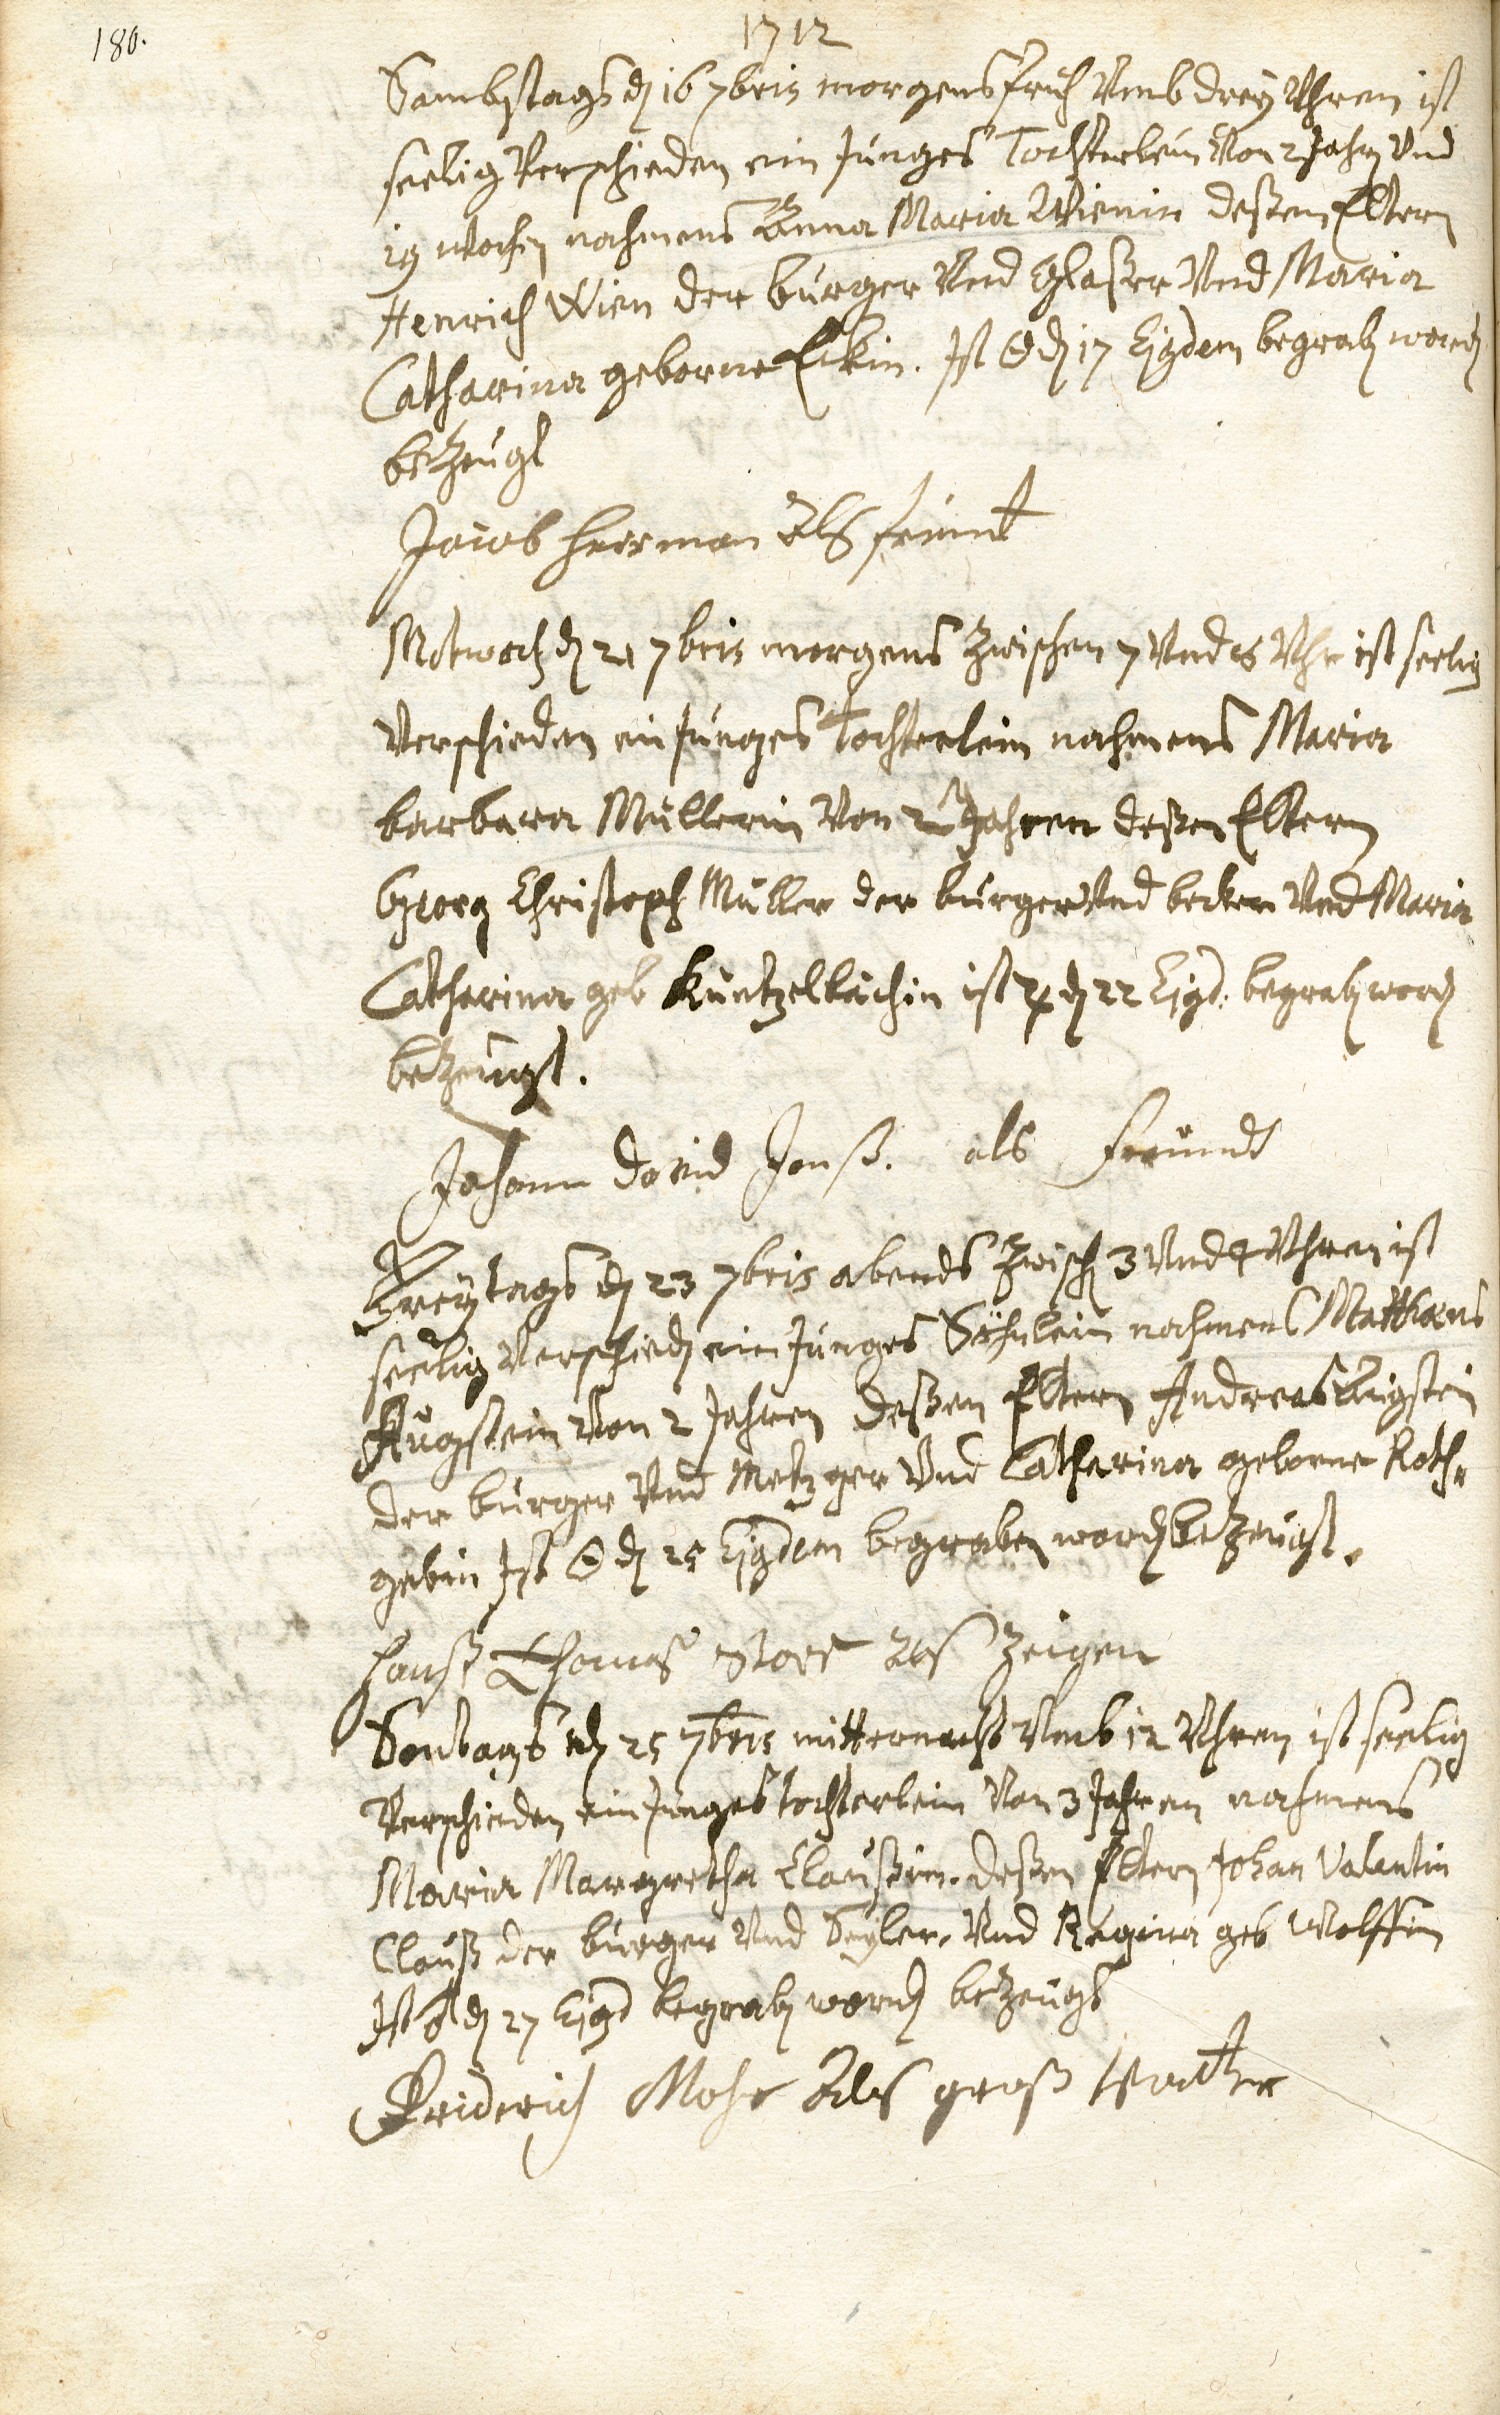 180.
1712
Sambstags dn 16 7bris morgens früh Umb drey Uhren ist
seelig Verschieden ein Junges Töchterlein Von 2 Jahrn Und
19 wochen nahmens Anna Maria Wienin deßen Eltern
Henrich Wien der burger Und Glaßer Und Maria
Catharina geborne Eckin. Ist ☉ dn 17 Ejgdem begrabn wordn
bezeugt
Jacob Herman Als freint
Mitwoch dn 21 7bris morgens zwischen 7 Und 8 Uhr ist seelig
Verschieden ein Junges Töchterlein nahmens Maria
barbara Müllerin Von 2 Jahren deßen Eltern
Georg Christoph Müller der burger Und becker Und Maria
Catharina geb Küntzelbächin ist ♃ dn 22 Ejgd. begrabn wordn
bezeugt.
Johann david Janß. als freündt
Freytags dn 23 7bris abends zwischn 3 Und 4 Uhren ist
seelig Verschiedn ein Junges Söhnlein nahmens Matthaeus
Augstein Von 2 Jahren deßen Eltern Andreas Augstein
der burger Und Metzger Und Catharina geborne Roth-
gebin Ist ☉ dn 25 Ejgdem begraben wordn bezeugt.
Hanß Thomas Als Zeigen
Sontags dn 25 7bris mitternacht Umb 12 Uhren ist seelig
Verschieden ein Junges töchterlein Von 3 Jahren nahmens
Maria Margretha Claußin. deßen Eltern Johan Valentin
Clauß der burger Und Seyler, Und Regina geb Wolffin
Ist ♂ dn 27 Ejgd begrabn wordn bezeugt
Friderich Mohr Als groß Vatter